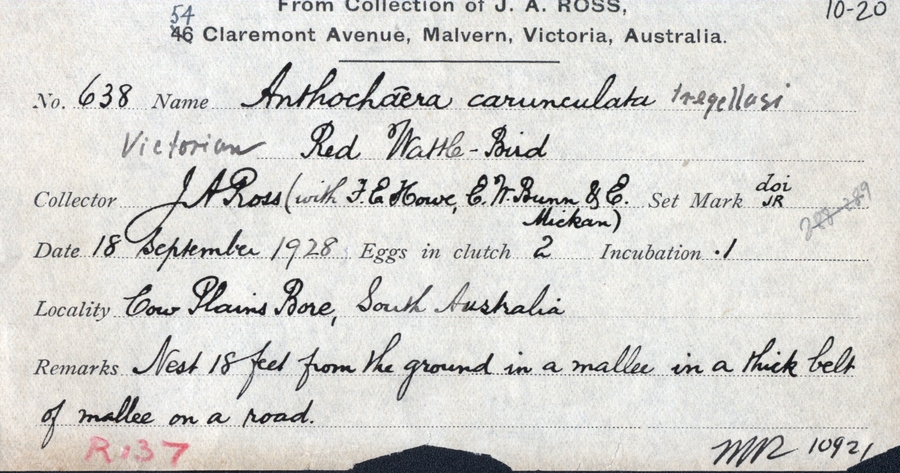 From Collection of J. A. ROSS, 10-20
54
46 Claremont Avenue, Malvern, Victoria, Australia.
No. 638 Name Anthochaera carunculata tregellasi
Victorian Red Wattle-Bird
Collector J A Ross (with F. E. Howe, C. W. Bunn & E. Mickan) Set Mark doi JR
Date 18 September 1928 Eggs in clutch 2 Incubation ·1
Locality Cow Plains Bore, South Australia
Remarks Nest 18 feet from the ground in a mallee in a thick belt
of mallee on a road.
R.137 10921